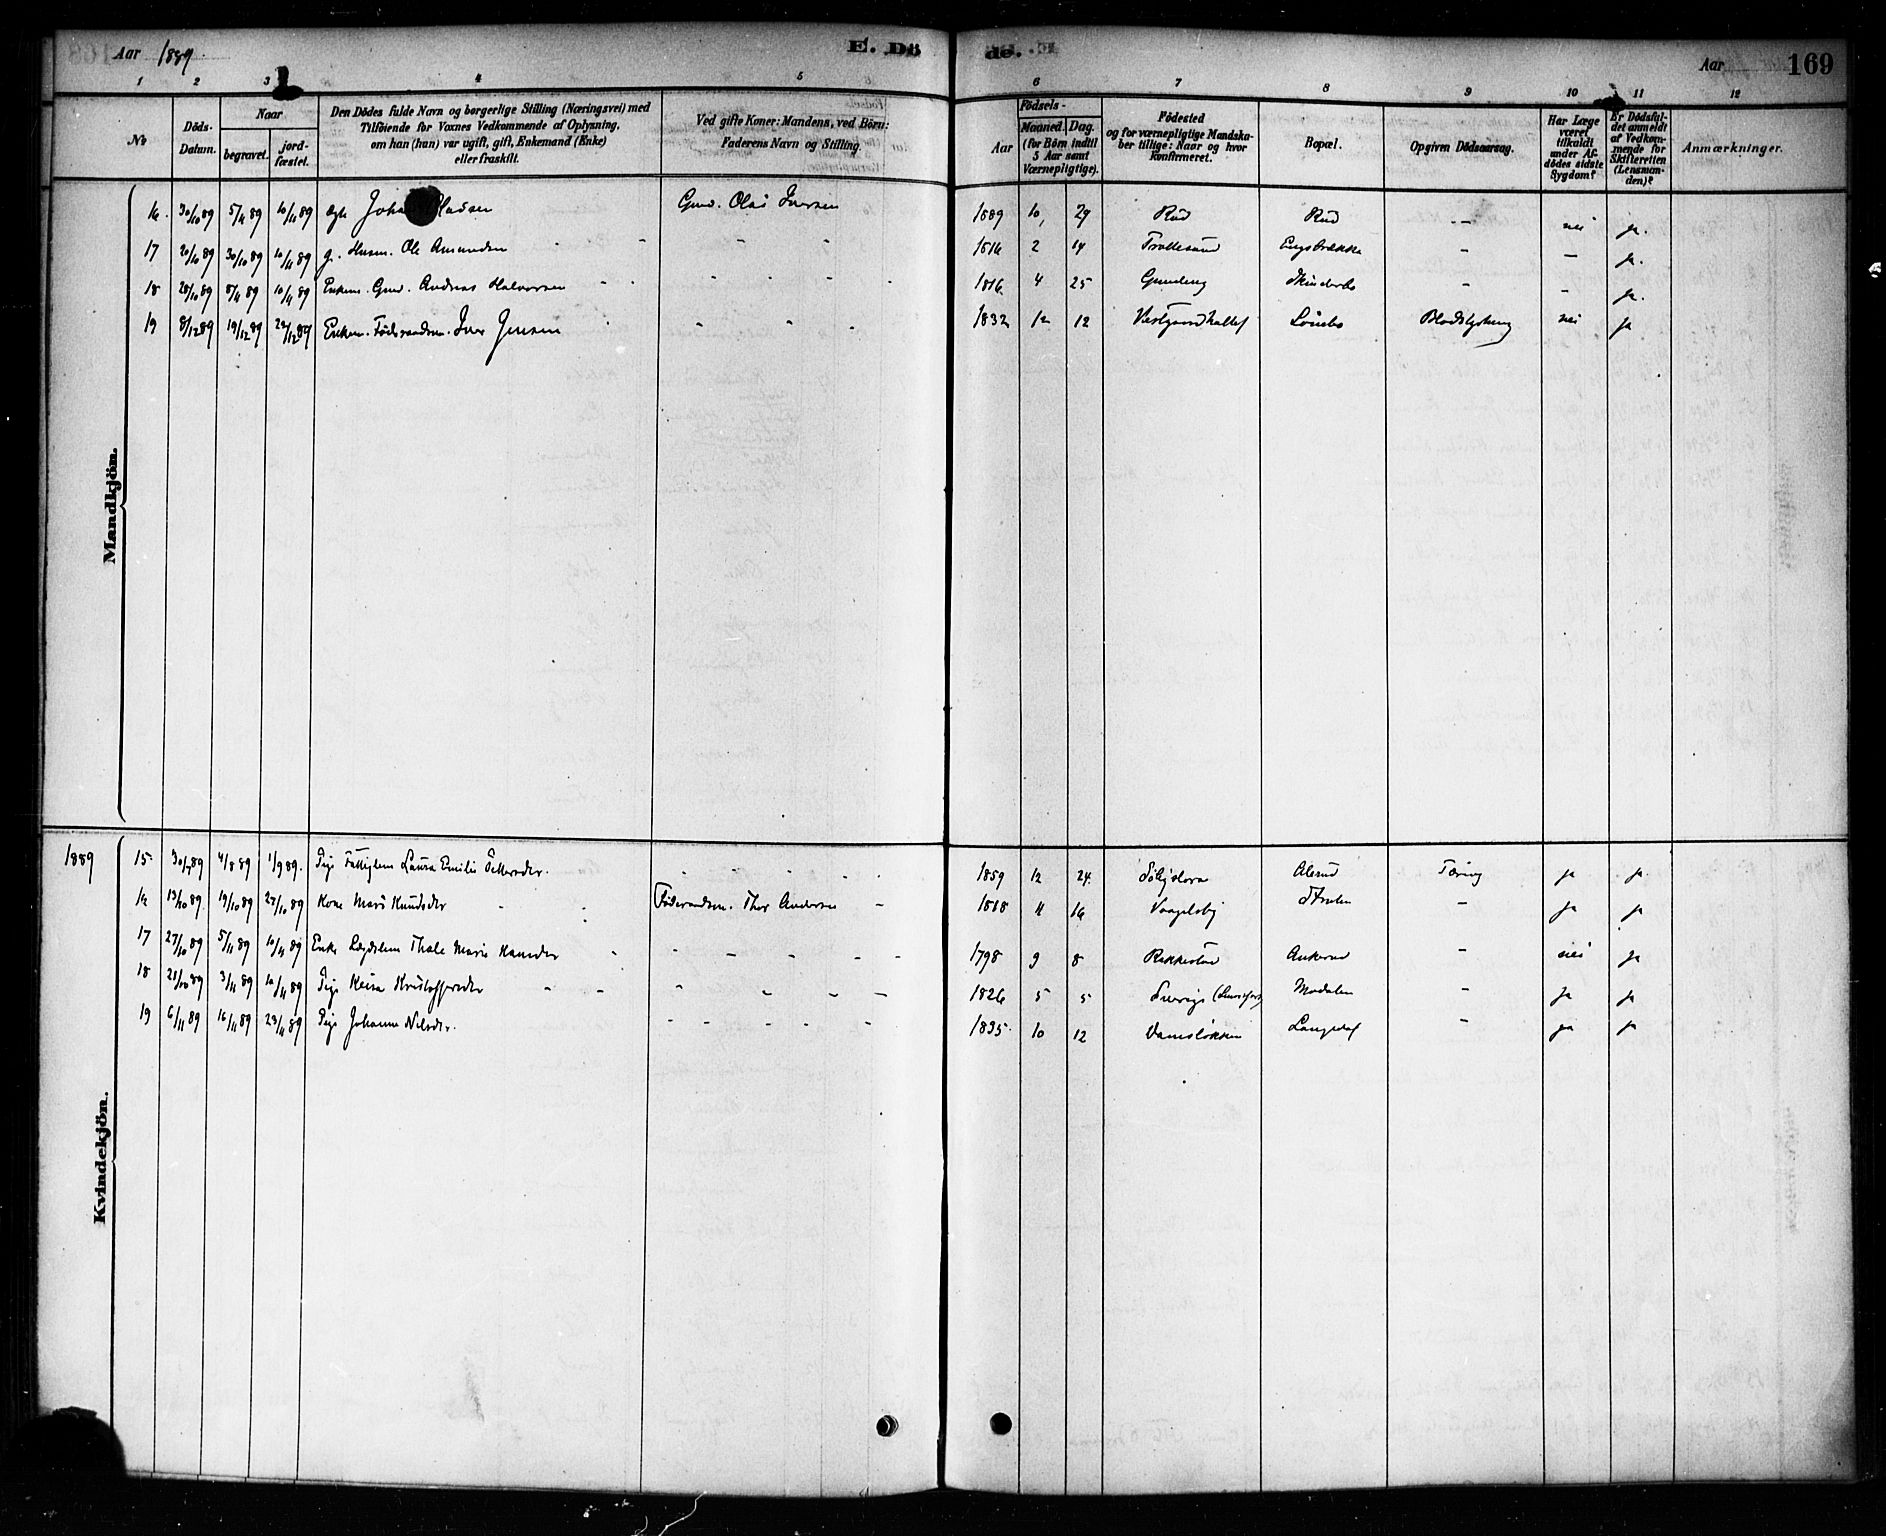 Aar 1889.
E. Dö
de.
Aar
169
1 2 3 4 5 6 7 8 9 10 11 12
No
Döds-Datum.
Naar
begravet.
jord-fæstet.
Den Dödes fulde Navn og borgerlige Stilling (Næringsvei) med
Tilföiende for Voxnes Vedkommende af Oplysning,
om han (hun) var ugift, gift, Enkemand (Enke)
eller fraskilt.
Ved gifte Koner: Mandens, ved Börn:
Faderens Navn og Stilling.
Födsels-
Aar
Maaned. Dag.
(for Börn indtil
5 Aar samt
Værnepligtige).
Födested
og for værnepligtige Mandska-
ber tillige: Naar og hvor
konfirmeret.
Bopæl.
Opgiven Dödsaarsag.
Har Læge
været
tilkaldt
under Af-
dödes sidste
Sygdom?
Er Dödsfal-
det anmeldt
af Vedkom-
mende for
Skifteretten
(Lensman-
den)?
Anmærkninger.
Mandkjön.
16. 30/10 89 5/11 89 10/11 89 Joha Gmd. Olai Iversen 1889 10, 29 Rud Rud - nei ja.
17 20/10 89 30/10 89 10/11 89 g. Husm. Ole Amundsen - - 1816 2 14 - - ja.
18 28/10 89 8/11 89 10/11 89 Enkem. Gmd. Andreas Halvorsen - - 1816 4 25 - - ja.
19 8/12 89 19/12 89 29/12 89 Enkem. Föderaadsm. Iver Jensen - - - 1832 12 12 nei ja
Kvindekjön.
1889
15 30/7 89 4/8 89 1/9 89. Pige Laura Emilie Pettersdtr. 1859 12 24. Tæring ja ja.
16 13/10 89 19/10 89 27/10 89 Kone Mari Knudsdtr - Föderaadsm. Thor Andersen - 1818 11 16 - ja ja
17 27/10 89 5/11 89 10/11 89 Enke Lægdslem Thale Marie - - - - - 1798 9 8 Rakkestad Ankerud - nei ja
18 28/10 89 3/11 89 10/11 89 Pige Kristoffersdtr - - - - - 1826 5 5 Sverige Modalen - ja ja
19 6/11 89 16/11 89 29/11 89 Pige Johanne Nilsdtr. - - - - - 1835. 10 12 - ja ja